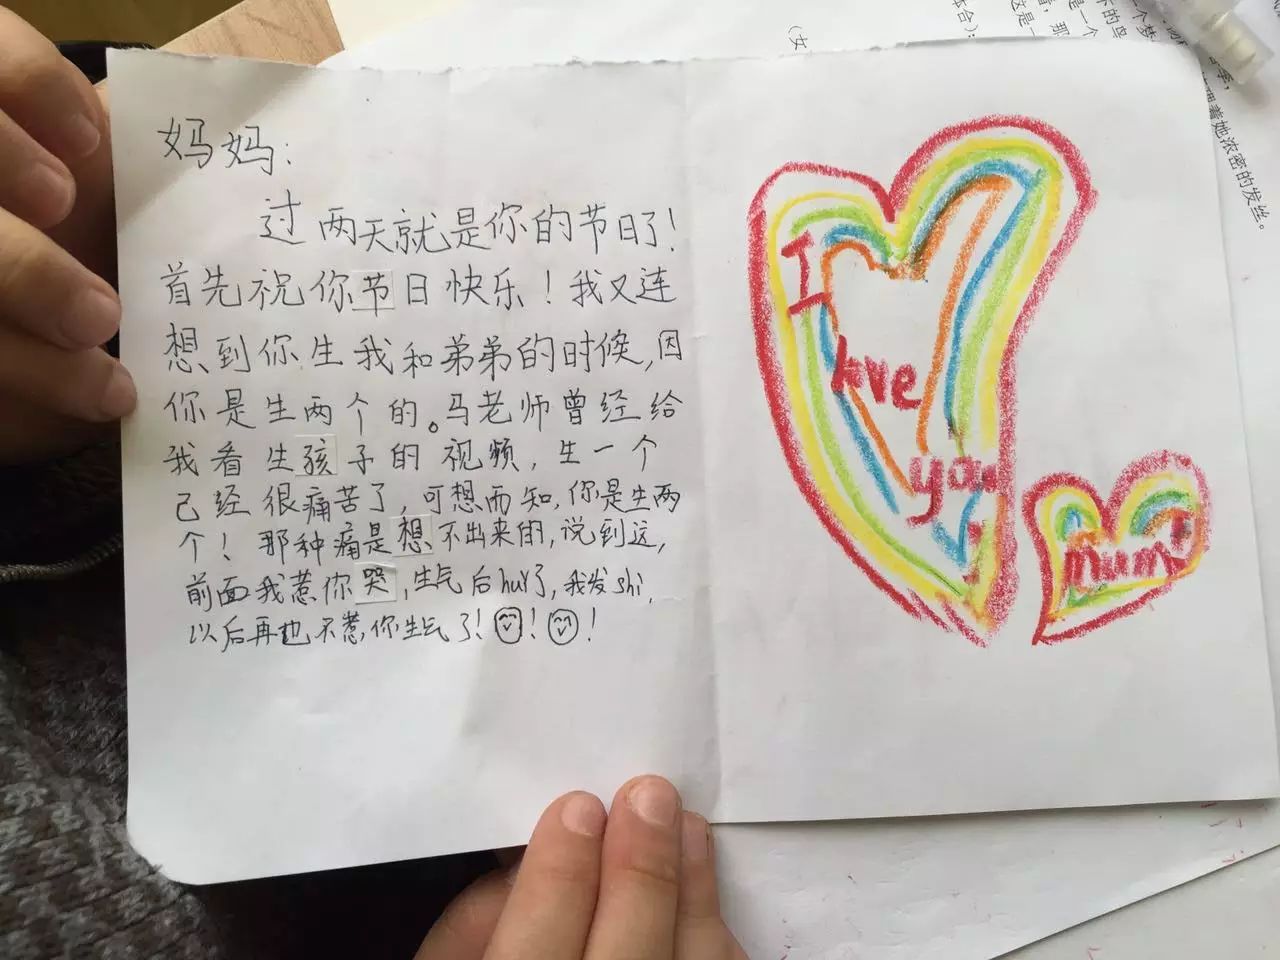 妈妈：
过两天就是你的节日了！
首先祝你节日快乐！我又连
想到你生我和弟弟的时候,因
你是生两个的。马老师曾经给
我看生孩子的视频,生一个
已经很痛苦了,可想而知,你是生两
个！那种痛是想不出来的,说到这,
前面我惹你哭,生气后huǐ了,我发shì,
以后再也不惹,你生气了！！！
I
love
you
mum！
(女
着她浓密的发丝。